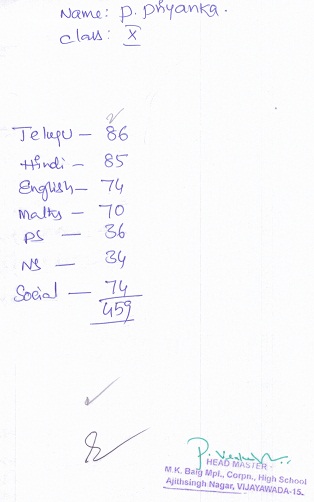 Name: P. Priyanka.
class: X
Telugu — 86
Hindi — 85
English — 74
Maths — 70
PS — 36
NS — 34
Social — 74
459
HEAD MASTER
M.K. Baig Mpl., Corpn., High School
Ajithsingh Nagar, VIJAYAWADA-15.